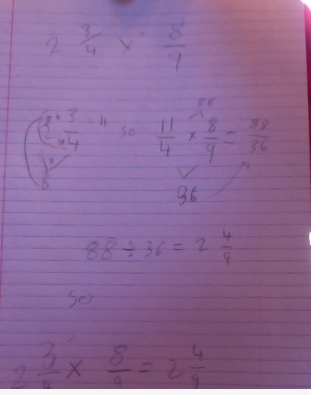 2 3/4 × 8/9
+ 3 = 11
4
88
so 11/4 × 8/9 = 88/36
36
88 ÷ 36 = 2 4/9
so
2 3/4 × 8/9 = 2 4/9